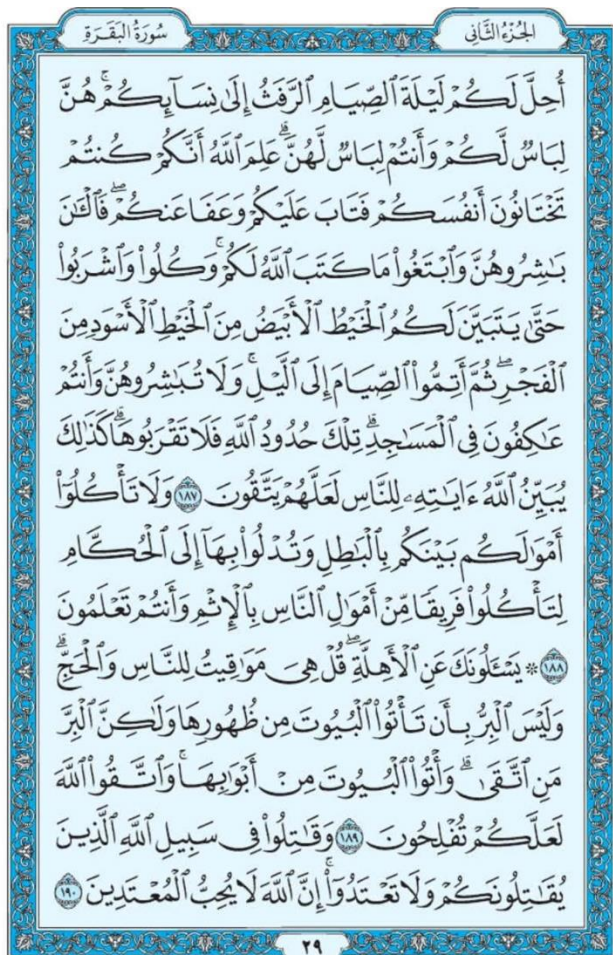 الجُزْءُ الثَّانِي
سُورَةُ البَقَرَةِ
أُحِلَّ لَكُمْ لَيْلَةَ ٱلصِّيَامِ ٱلرَّفَثُ إِلَىٰ نِسَآئِكُمْۚ هُنَّ
لِبَاسٌ لَّكُمْ وَأَنتُمْ لِبَاسٌ لَّهُنَّۗ عَلِمَ ٱللَّهُ أَنَّكُمْ كُنتُمْ
تَخْتَانُونَ أَنفُسَكُمْ فَتَابَ عَلَيْكُمْ وَعَفَا عَنكُمْۖ فَٱلْـَٰٔنَ
بَٰشِرُوهُنَّ وَٱبْتَغُوا۟ مَا كَتَبَ ٱللَّهُ لَكُمْۚ وَكُلُوا۟ وَٱشْرَبُوا۟
حَتَّىٰ يَتَبَيَّنَ لَكُمُ ٱلْخَيْطُ ٱلْأَبْيَضُ مِنَ ٱلْخَيْطِ ٱلْأَسْوَدِ مِنَ
ٱلْفَجْرِۖ ثُمَّ أَتِمُّوا۟ ٱلصِّيَامَ إِلَى ٱلَّيْلِۚ وَلَا تُبَٰشِرُوهُنَّ وَأَنتُمْ
عَٰكِفُونَ فِى ٱلْمَسَٰجِدِۗ تِلْكَ حُدُودُ ٱللَّهِ فَلَا تَقْرَبُوهَاۗ كَذَٰلِكَ
يُبَيِّنُ ٱللَّهُ ءَايَٰتِهِۦ لِلنَّاسِ لَعَلَّهُمْ يَتَّقُونَ ١٨٧ وَلَا تَأْكُلُوٓا۟
أَمْوَٰلَكُم بَيْنَكُم بِٱلْبَٰطِلِ وَتُدْلُوا۟ بِهَآ إِلَى ٱلْحُكَّامِ
لِتَأْكُلُوا۟ فَرِيقًا مِّنْ أَمْوَٰلِ ٱلنَّاسِ بِٱلْإِثْمِ وَأَنتُمْ تَعْلَمُونَ
١٨٨ ۞ يَسْـَٔلُونَكَ عَنِ ٱلْأَهِلَّةِۖ قُلْ هِىَ مَوَٰقِيتُ لِلنَّاسِ وَٱلْحَجِّۗ
وَلَيْسَ ٱلْبِرُّ بِأَن تَأْتُوا۟ ٱلْبُيُوتَ مِن ظُهُورِهَا وَلَٰكِنَّ ٱلْبِرَّ
مَنِ ٱتَّقَىٰۗ وَأْتُوا۟ ٱلْبُيُوتَ مِنْ أَبْوَٰبِهَاۚ وَٱتَّقُوا۟ ٱللَّهَ
لَعَلَّكُمْ تُفْلِحُونَ ١٨٩ وَقَٰتِلُوا۟ فِى سَبِيلِ ٱللَّهِ ٱلَّذِينَ
يُقَٰتِلُونَكُمْ وَلَا تَعْتَدُوٓا۟ۚ إِنَّ ٱللَّهَ لَا يُحِبُّ ٱلْمُعْتَدِينَ ١٩٠
٢٩